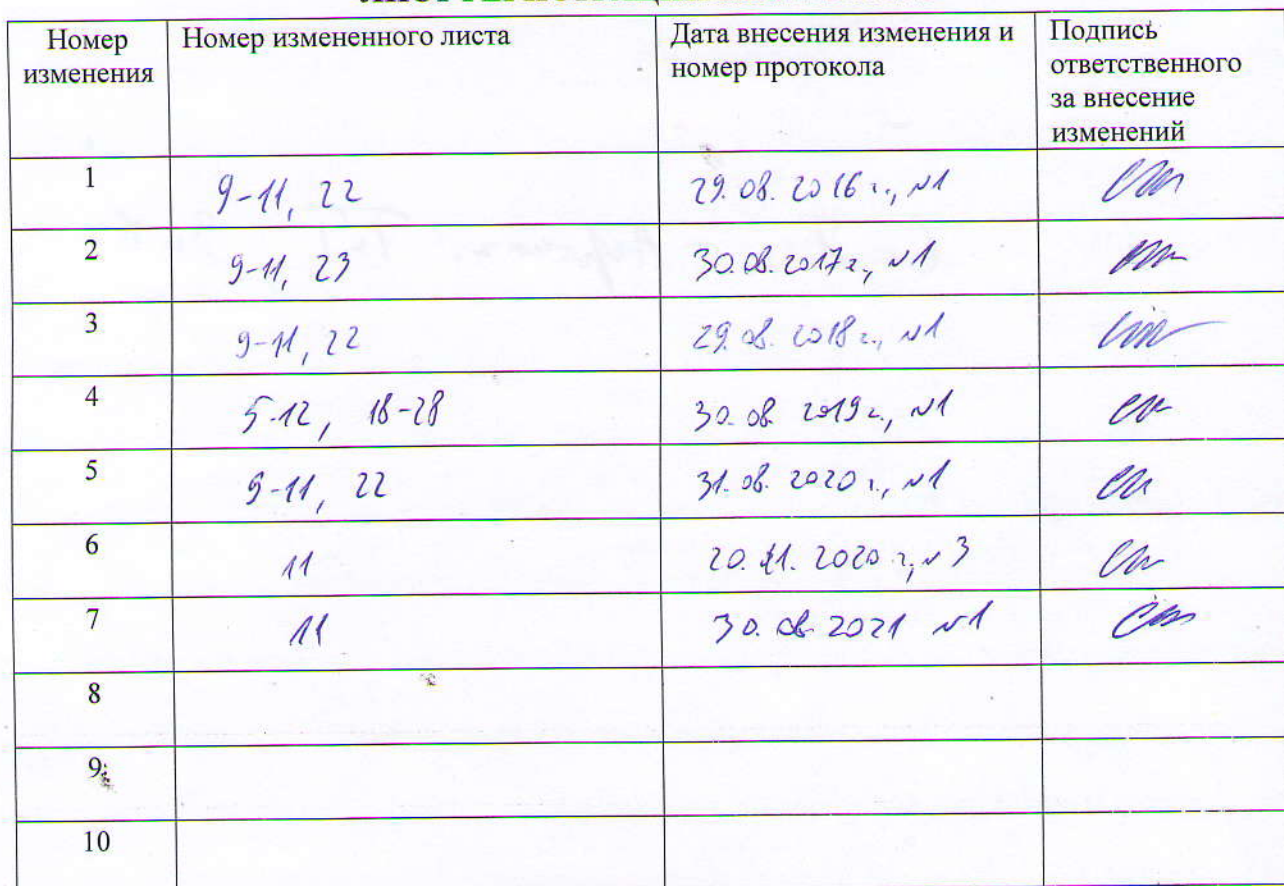 Номер изменения | Номер измененного листа | Дата внесения изменения и номер протокола | Подпись ответственного за внесение изменений
1 | 9-11, 22 | 29.08.2016 г., №1
2 | 9-11, 23 | 30.08.2017 г., №1
3 | 9-11, 22 | 29.08.2018 г., №1
4 | 5-12, 18-28 | 30.08.2019 г., №1
5 | 9-11, 22 | 31.08.2020 г., №1
6 | 11 | 20.11.2020 г., №3
7 | 11 | 30.08.2021 №1
8
9
10